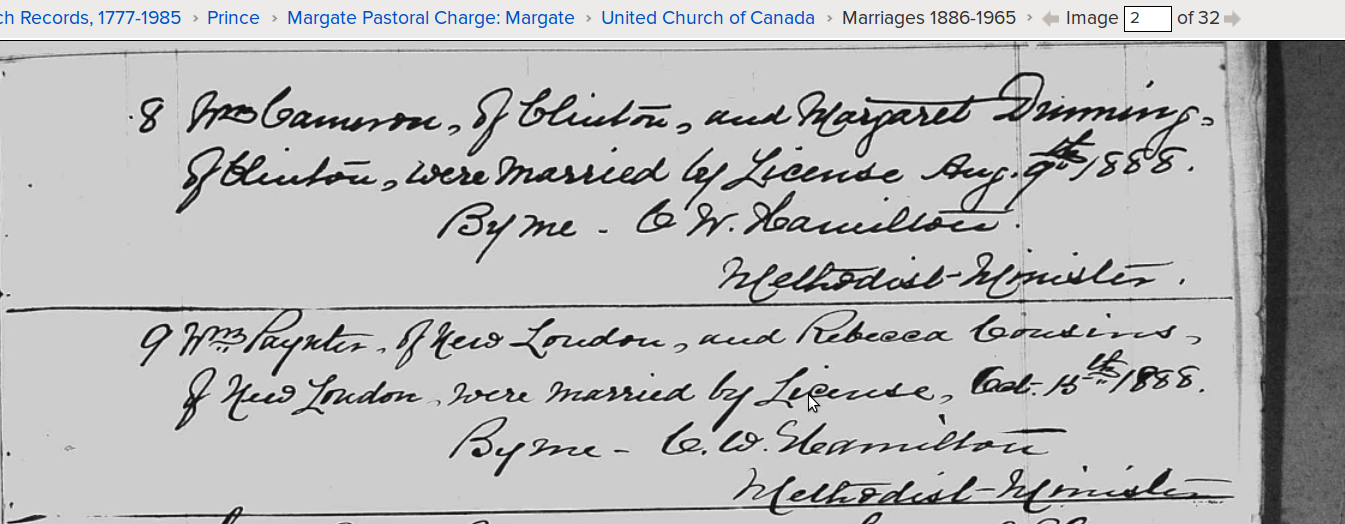 ch Records, 1777-1985 › Prince › Margate Pastoral Charge: Margate › United Church of Canada › Marriages 1886-1965 › Image 2 of 32
8 Wm Cameron, of Clinton, and Margaret Dunning,
of Clinton, were married by License Aug. 9th 1888.
By me - C W. Hamilton.
Methodist Minister.
9 Wm Paynter, of New London, and Rebecca Cousins,
of New London, were married by License, Oct. 15th 1888.
By me - C. W. Hamilton
Methodist Minister